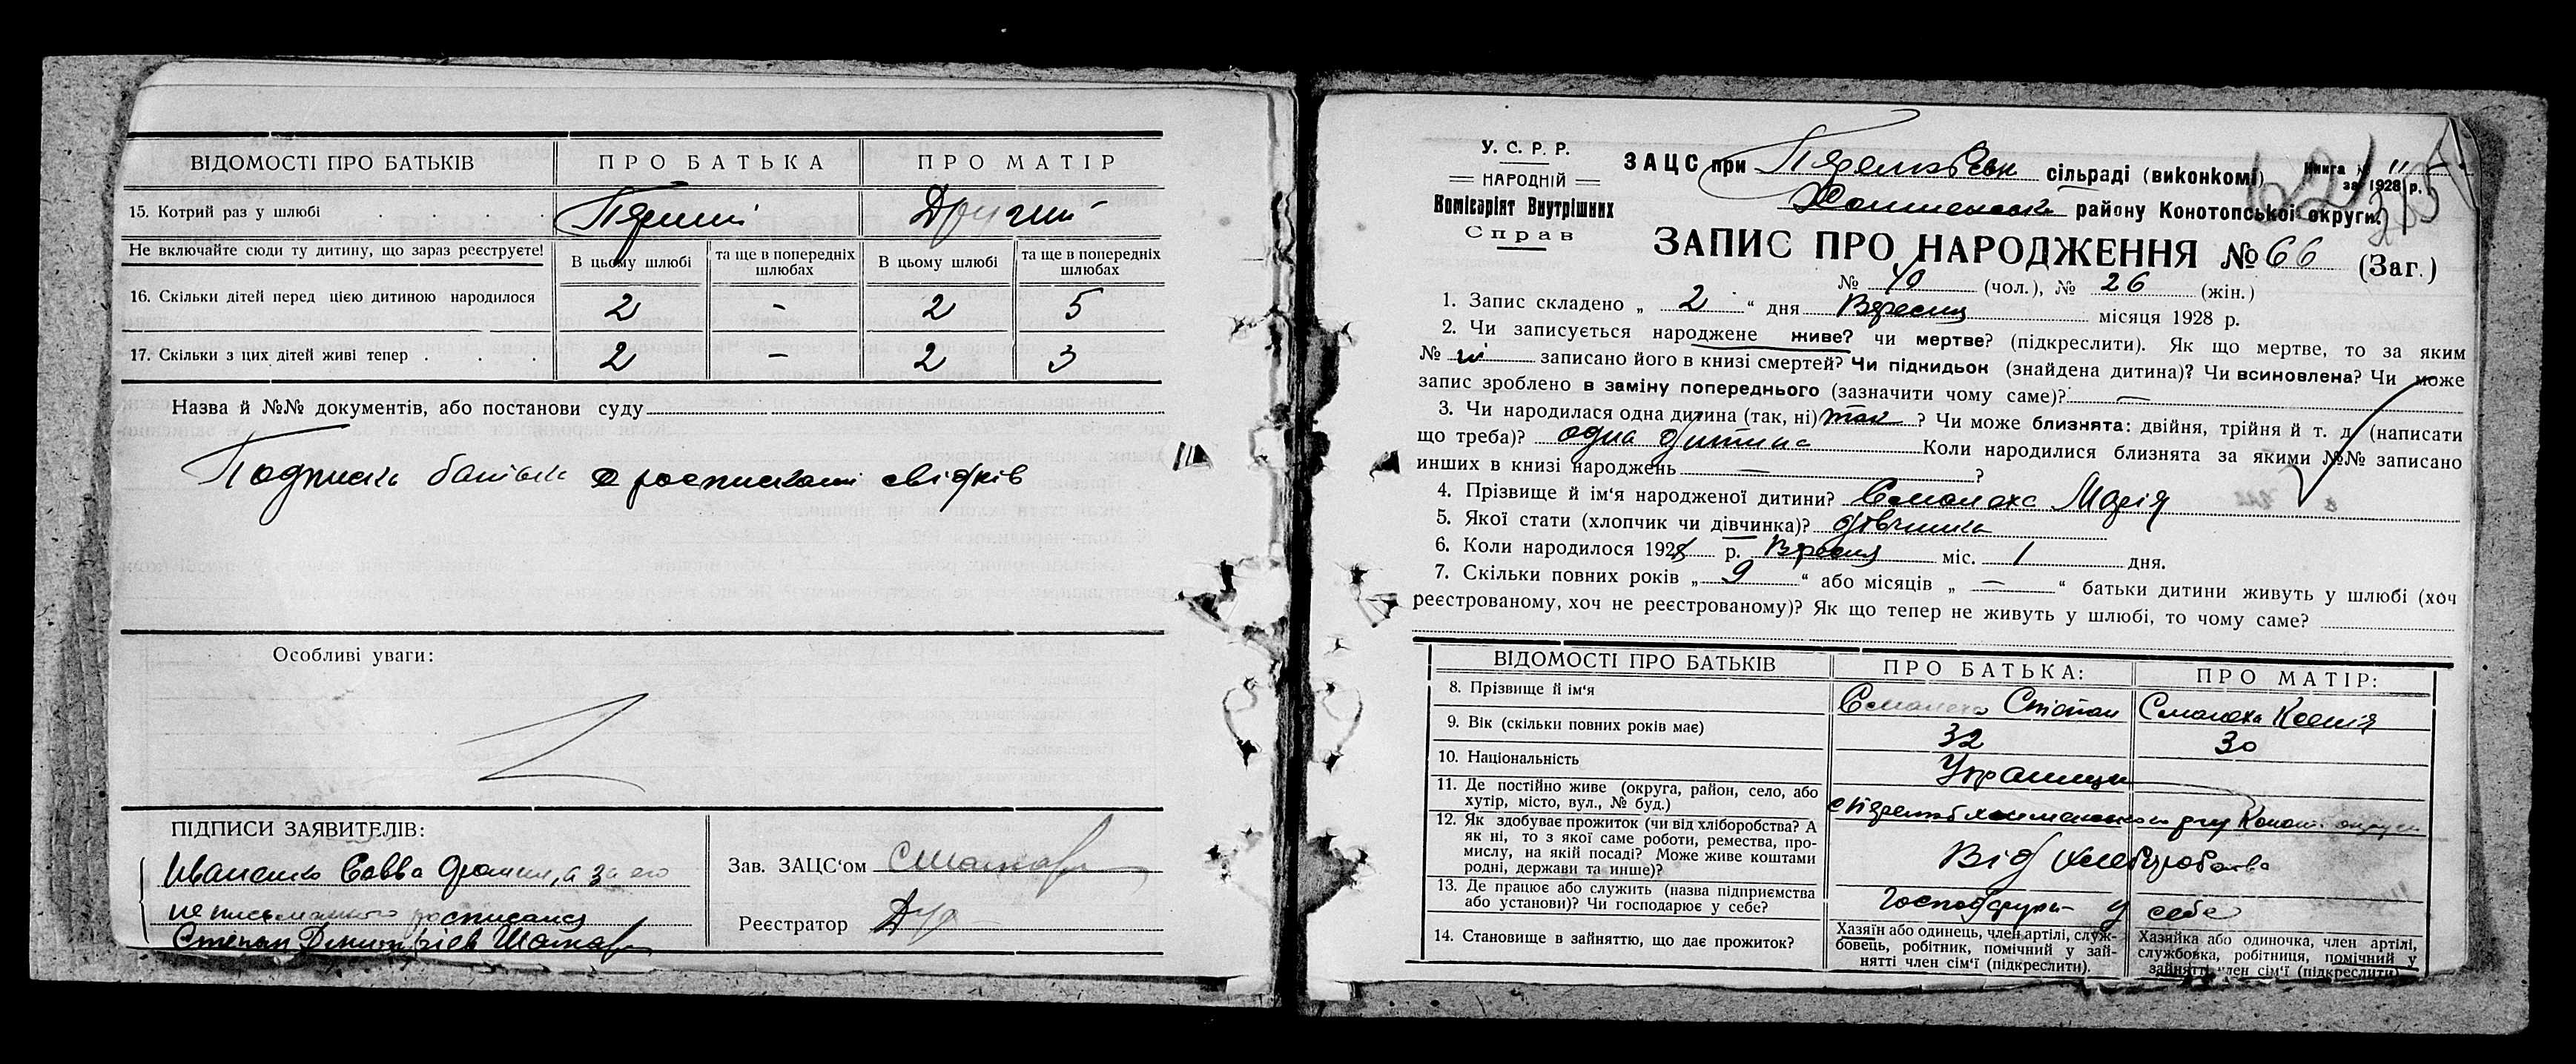 ВІДОМОСТІ ПРО БАТЬКІВ ПРО БАТЬКА ПРО МАТІР
15. Котрий раз у шлюбі Другий
Не включайте сюди ту дитину, що зараз реєструєте! В цьому шлюбі та ще в попередніх шлюбах В цьому шлюбі та ще в попередніх шлюбах
16. Скільки дітей перед цією дитиною народилося 2 - 2 5
17. Скільки з цих дітей живі тепер 2 - 2 3
Назва й №№ документів, або постанови суду
свідків
Особливі уваги:
ПІДПИСИ ЗАЯВИТЕЛІВ:
Иваненко Савва
росписался
Степан
Зав. ЗАЦС'ом
Реєстратор
У. С. Р. Р.
НАРОДНІЙ
Комісаріят Внутрішних
Справ
ЗАЦС при сільраді (виконкомі)
району Конотопської округи.
Книга № 11
за 1928 р.
ЗАПИС ПРО НАРОДЖЕННЯ № 66 (Заг.)
№ 40 (чол.), № 26 (жін.)
1. Запис складено „ 2 “ дня Вересня місяця 1928 р.
2. Чи записується народжене живе? чи мертве? (підкреслити). Як що мертве, то за яким
№ записано його в книзі смертей? Чи підкидьок (знайдена дитина)? Чи всиновлена? Чи може
запис зроблено в заміну попереднього (зазначити чому саме)? —
3. Чи народилася одна дитина (так, ні) так ? Чи може близнята: двійня, трійня й т. д. (написати
що треба)? одна дитина Коли народилися близнята за якими №№ записано
инших в книзі народжень — ?
4. Прізвище й ім'я народженої дитини? Смаляха Марія
5. Якої стати (хлопчик чи дівчинка)? дівчинка
6. Коли народилося 1928 р. Вересня міс. 1 дня.
7. Скільки повних років „ 9 “ або місяців „ — “ батьки дитини живуть у шлюбі (хоч
реєстрованому, хоч не реєстрованому)? Як що тепер не живуть у шлюбі, то чому саме?
ВІДОМОСТІ ПРО БАТЬКІВ ПРО БАТЬКА: ПРО МАТІР:
8. Прізвище й ім'я Смаляха Степан Смаляха Ксенія
9. Вік (скільки повних років має) 32 30
10. Національність Українци
11. Де постійно живе (округа, район, село, або
хутір, місто, вул., № буд.)
12. Як здобуває прожиток (чи від хліборобства? А
як ні, то з якої саме роботи, ремества, про-
мислу, на якій посаді? Може живе коштами
родні, держави та инше)? Від хлеборобства
13. Де працює або служить (назва підприємства
або установи)? Чи господарює у себе? у себе
14. Становище в зайняттю, що дає прожиток?
Хазяїн або одинець, член артілі, служ-
бовець, робітник, помічний у зай-
нятті член сім'ї (підкреслити).
Хазяйка або одиночка, член артілі,
службовка, робітниця, помічний у
зайнятті член сім'ї (підкреслити)